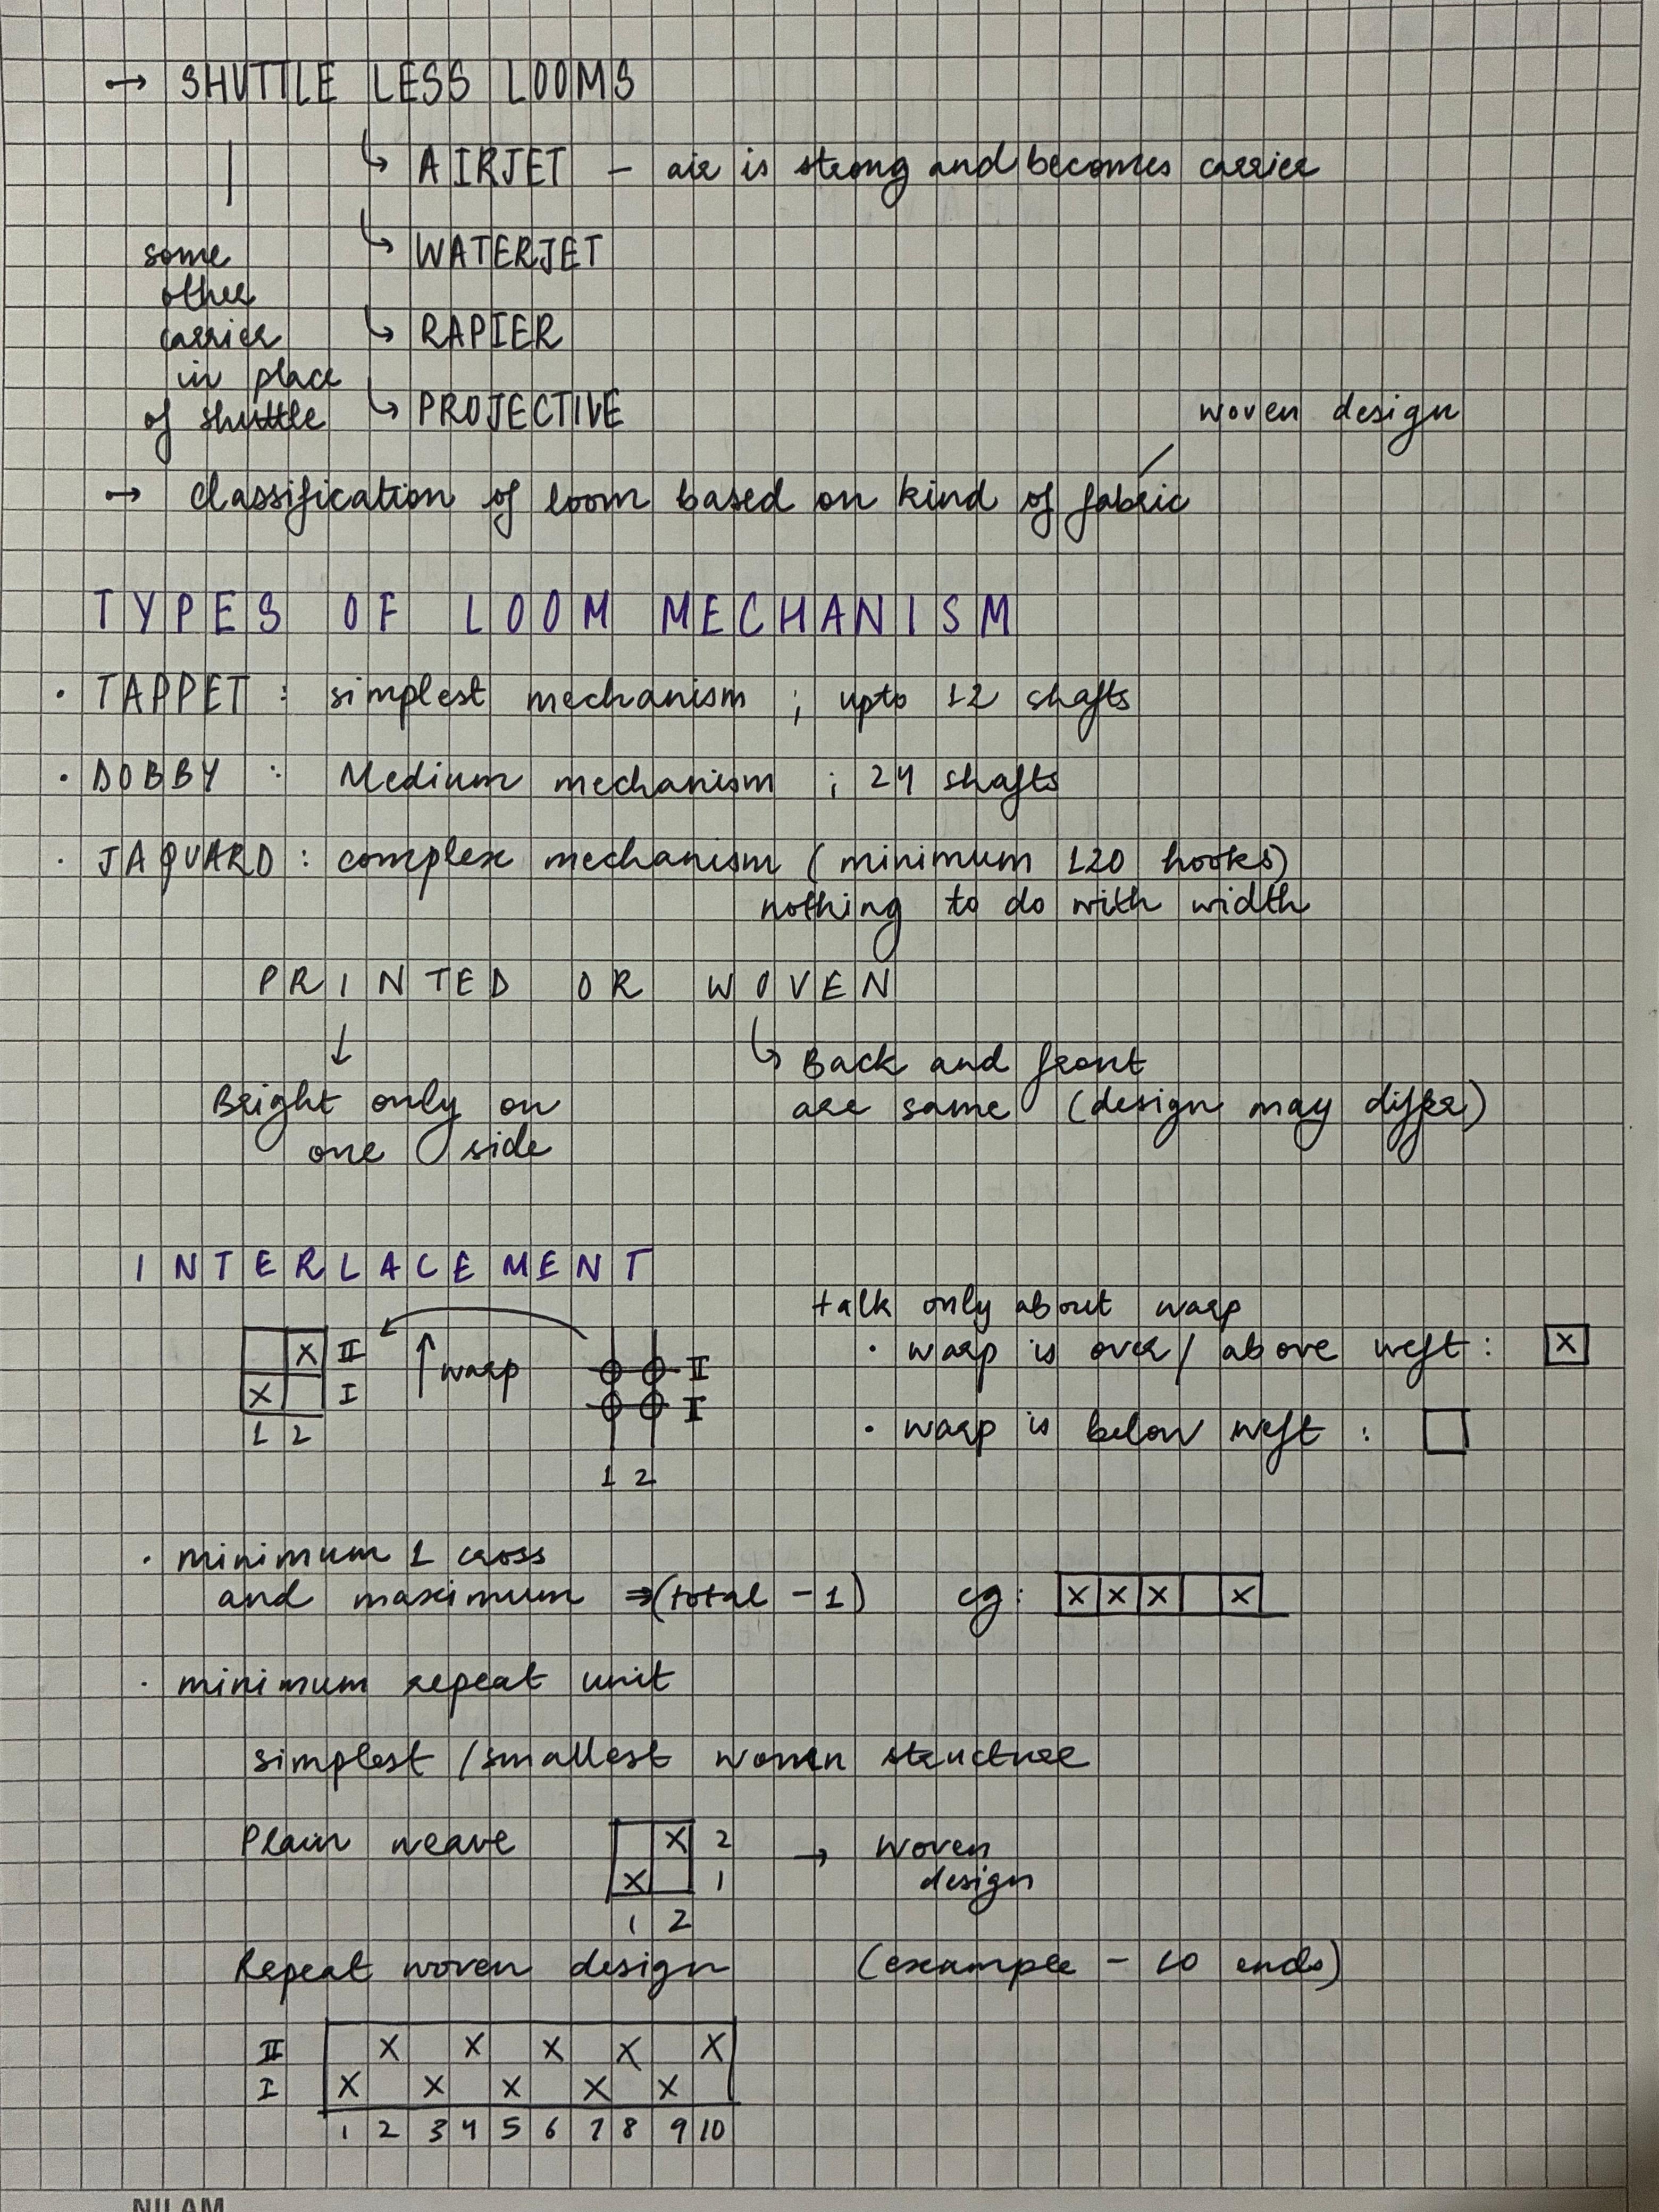 → SHUTTLE LESS LOOMS
↳ AIRJET – air is strong and becomes carrier
↳ WATERJET
↳ RAPIER
↳ PROJECTIVE
some
other
carrier
in place
of shuttle
woven design
→ Classification of loom based on kind of fabric
TYPES OF LOOM MECHANISM
· TAPPET : simplest mechanism ; upto 12 shafts
· DOBBY : Medium mechanism ; 24 shafts
· JAQUARD : complex mechanism (minimum 120 hooks)
nothing to do with width
PRINTED OR WOVEN
↓
Bright only on
one side
↳ Back and front
are same (design may differ)
INTERLACEMENT
X II
X I
1 2
↑ warp
II
I
1 2
talk only about warp
· warp is over / above weft : X
· warp is below weft :
· minimum 1 cross
and maximum ⇒ (total - 1) eg: X X X X
· minimum repeat unit
simplest / smallest woven structure
Plain weave
X 2
X 1
1 2
→ Woven
design
Repeat woven design (example - 10 ends)
II X X X X X
I X X X X X
1 2 3 4 5 6 7 8 9 10
NILAM